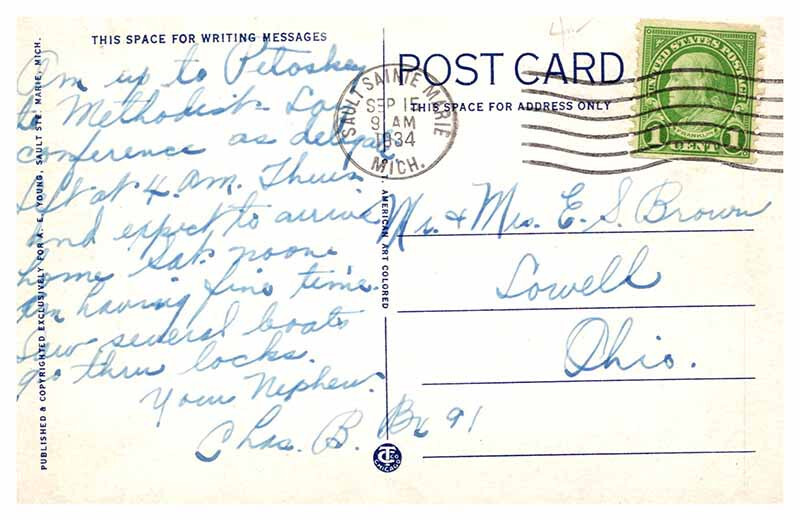 THIS SPACE FOR WRITING MESSAGES
Am up to Petoskey
to Methodist Lay
conference as delegate
Left at 4. A.M. Thurs
and expect to arrive
home Sat. noone
am having fine time.
Saw several boats
go thru locks.
Your Nephew.
Chas. B. Bx 91
PUBLISHED & COPYRIGHTED EXCLUSIVELY FOR A. E. YOUNG, SAULT STE. MARIE, MICH.
POST CARD
THIS SPACE FOR ADDRESS ONLY
SAULT SAINTE MARIE
SEP 15
9 AM
1934
MICH.
UNITED STATES POSTAGE
FRANKLIN
1 CENT 1
AMERICAN ART COLORED
Mr. & Mrs. E. S. Brown
Lowell
Ohio.
CHICAGO